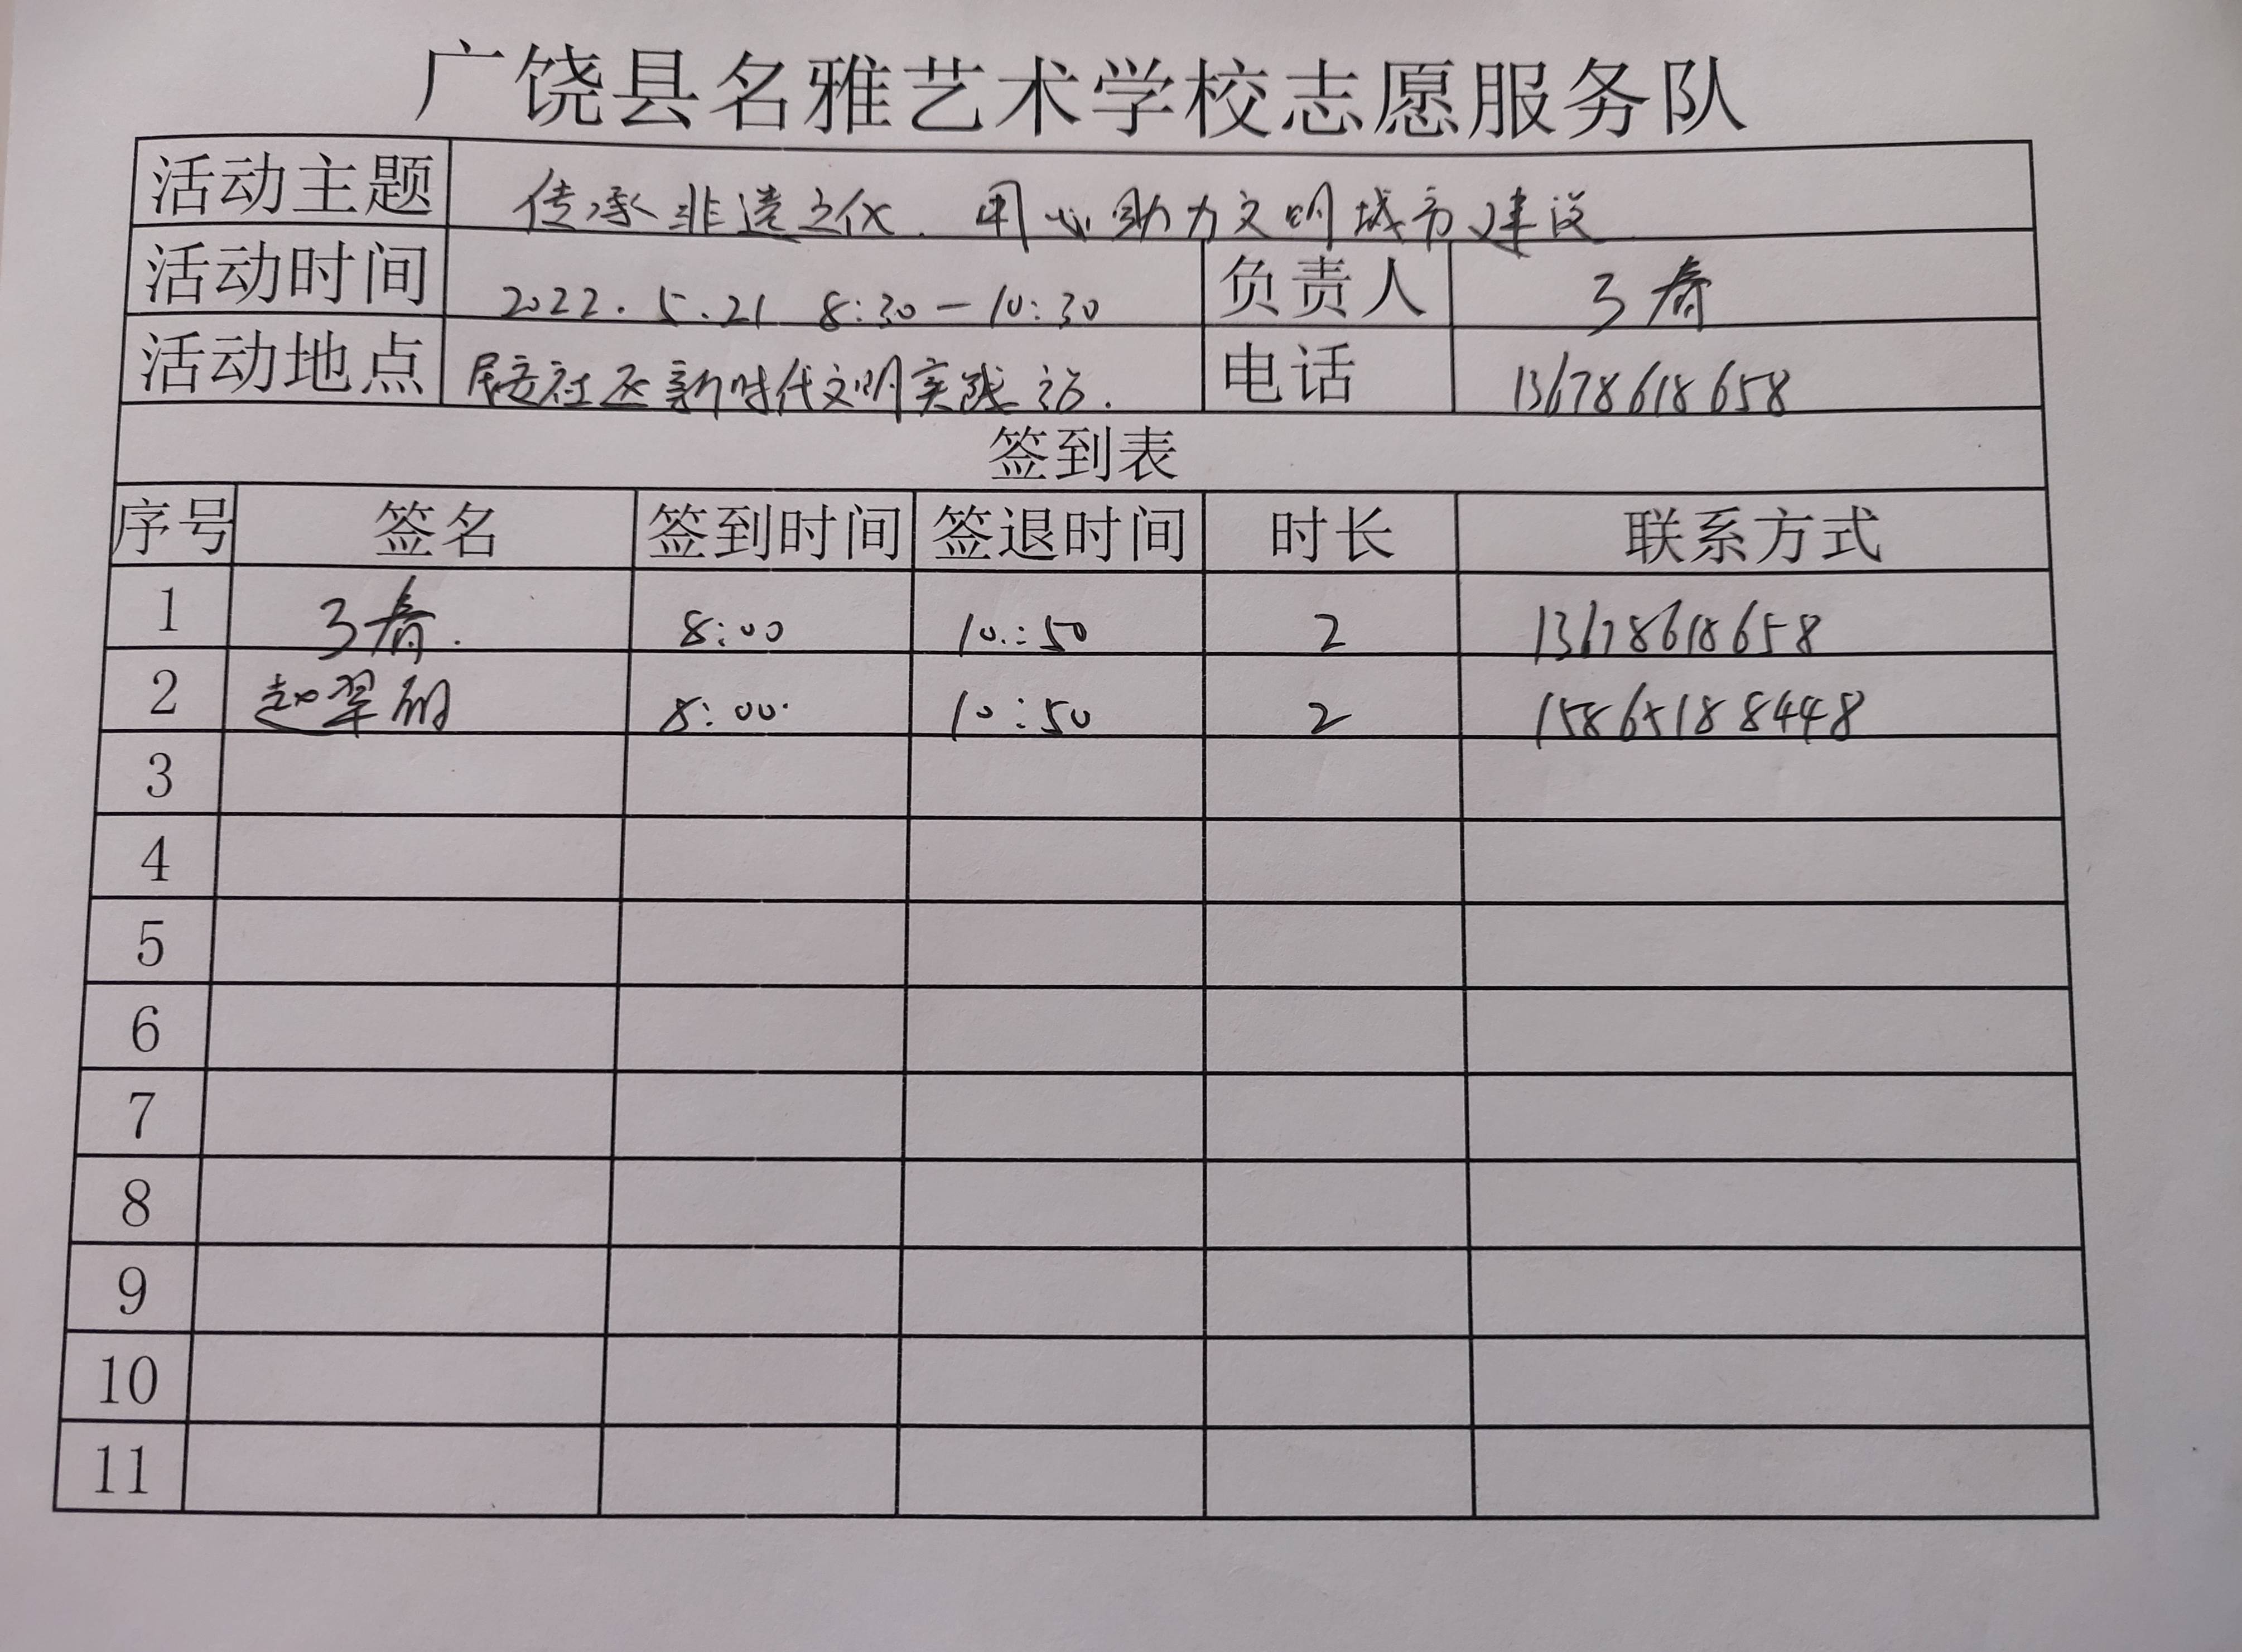 广饶县名雅艺术学校志愿服务队
活动主题 传承非遗文化 用心助力文明城市建设
活动时间 2022.5.21 8:30—10:30 负责人
活动地点 社区新时代文明实践站. 电话 13678618658
签到表
序号 签名 签到时间 签退时间 时长 联系方式
1 8:00 10:50 2 13678618658
2 赵翠 8:00 10:50 2 15865188448
3
4
5
6
7
8
9
10
11